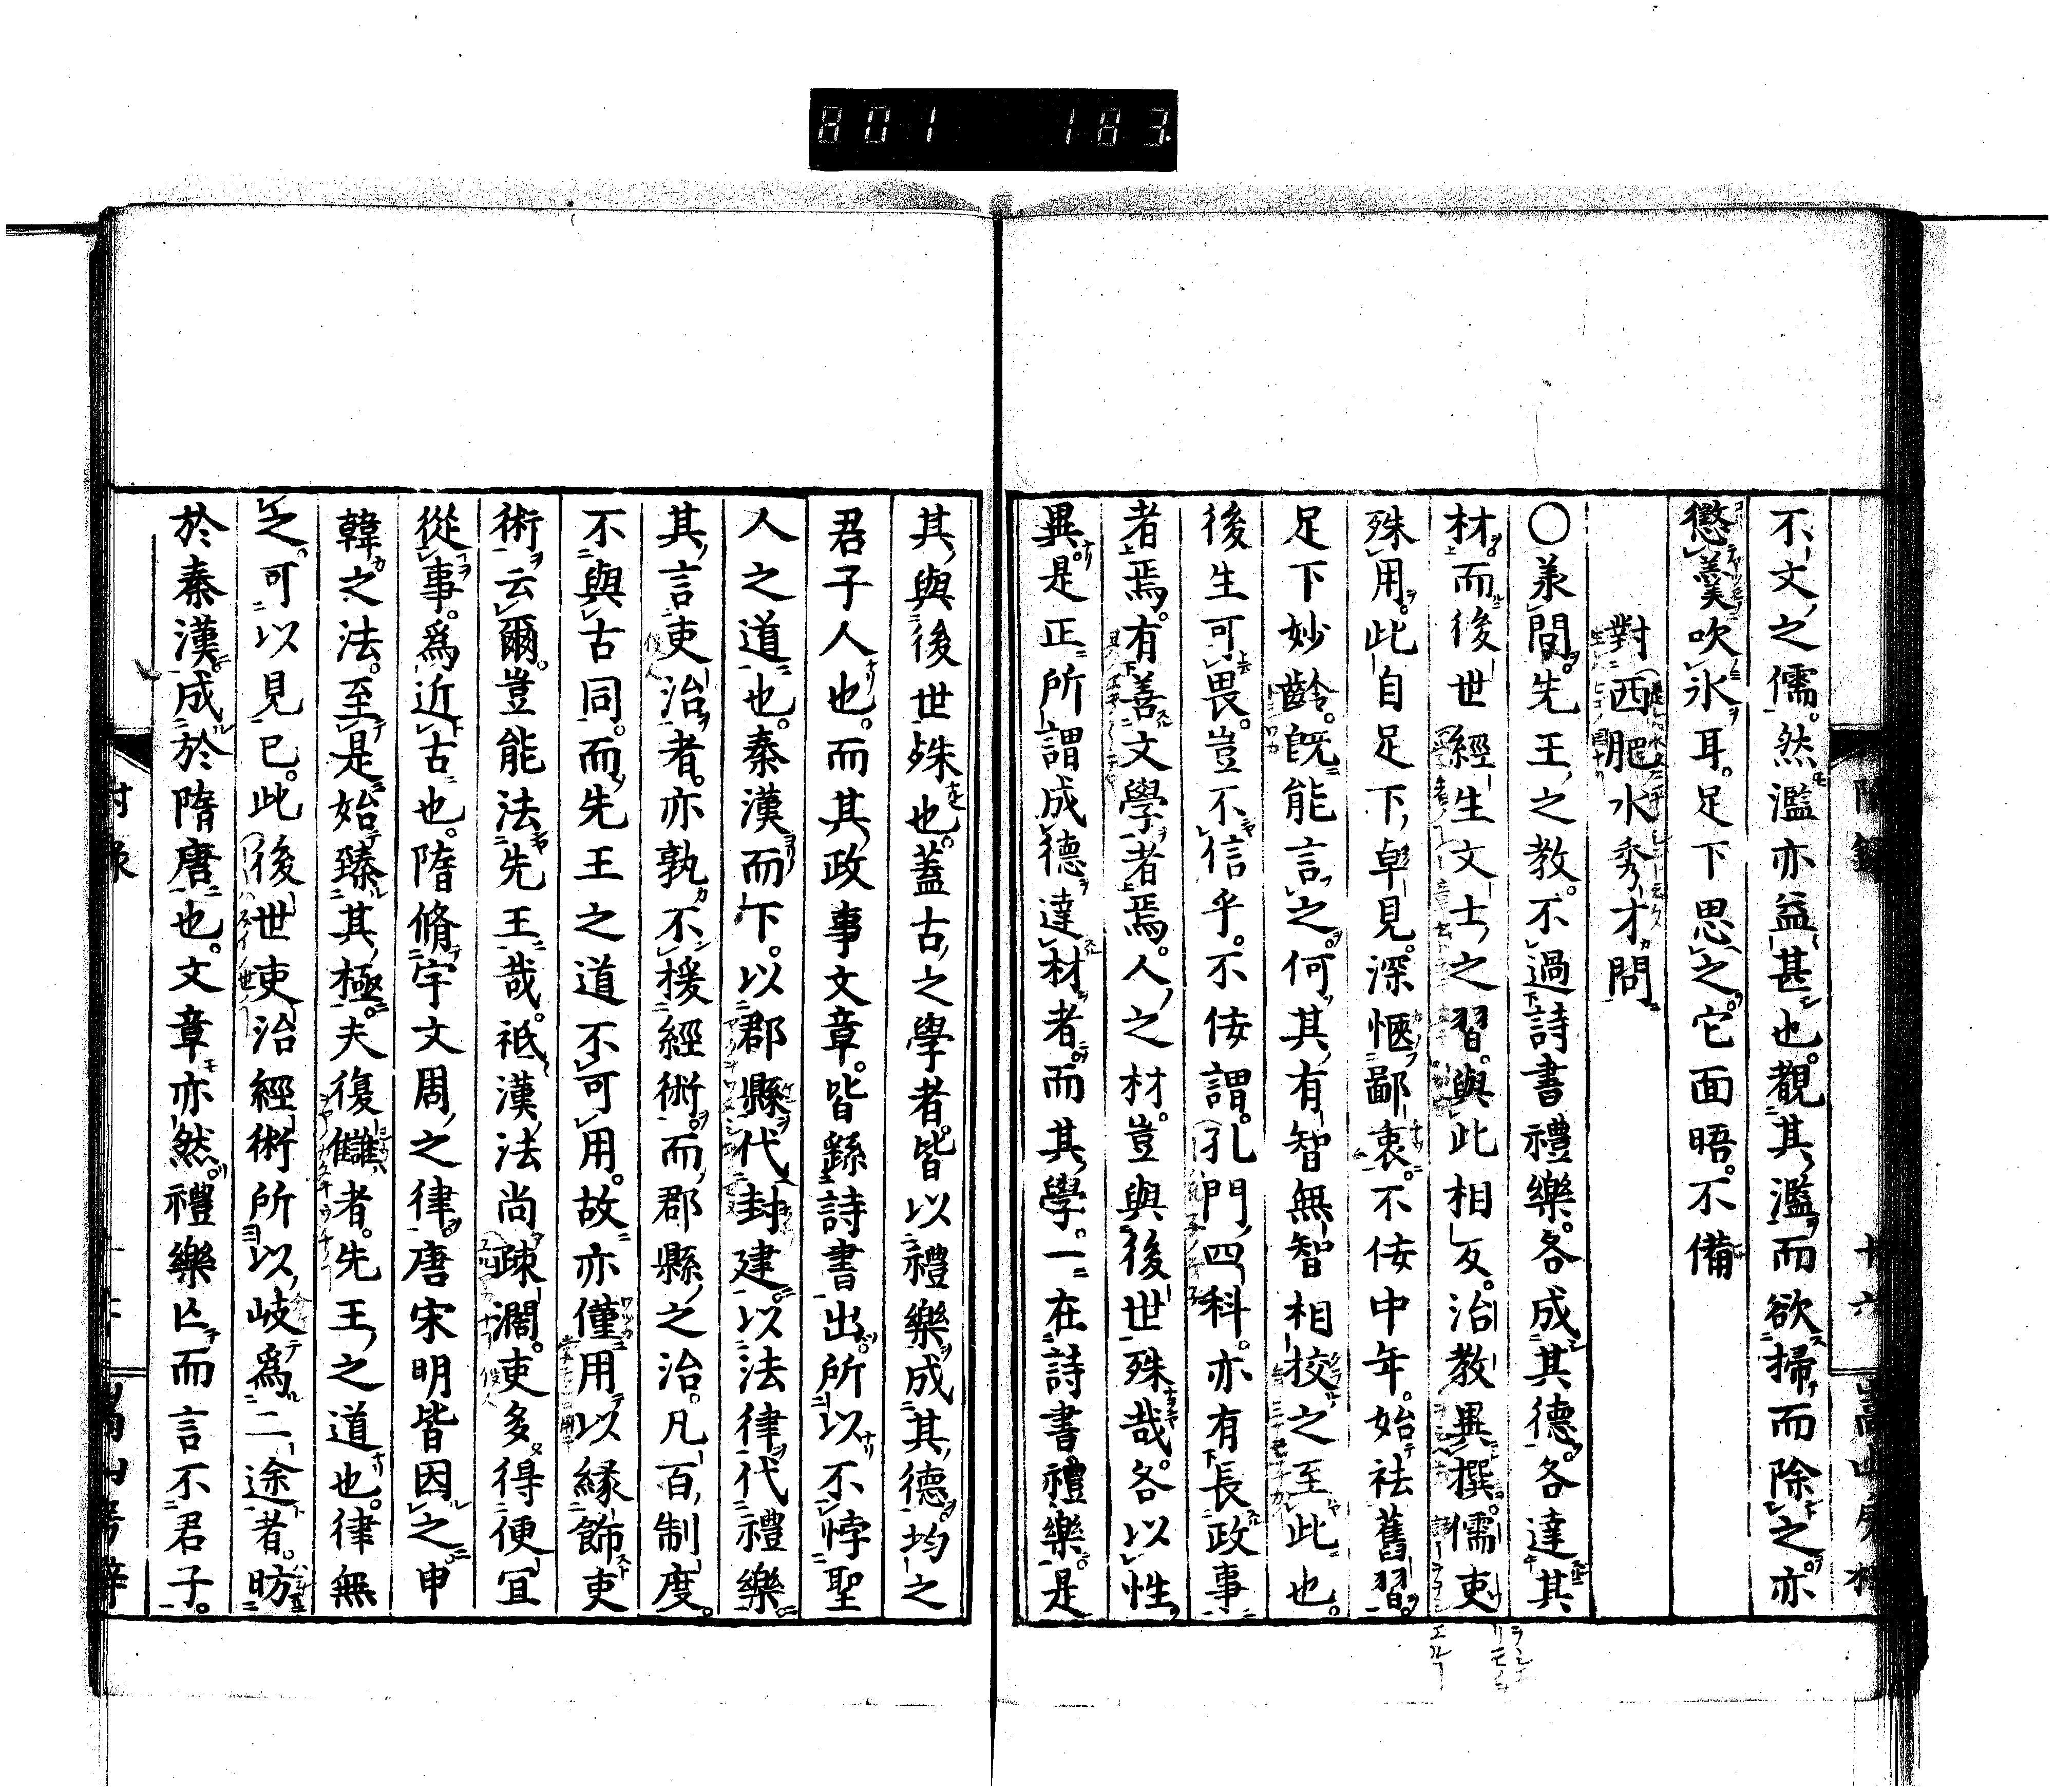 801 183
不文之儒。然濫亦益甚也。覩其濫而欲掃而除之。亦
懲羹吹冰耳。足下思之。它面晤。不備
對西肥水秀才問
〇承問。先王之教。不過詩書禮樂。各成其德。各達其
材。而後世經生文士之習。與此相反。治教異撰。儒吏
殊用。此自足下卓見。深愜鄙衷。不佞中年。始祛舊習。
足下妙齡。旣能言之。何其有智無智相挍之至此也。
後生可畏。豈不信乎。不佞謂。孔門四科。亦有長政事
者焉。有善文學者焉。人之材。豈與後世殊哉。各以性
異。是正所謂成德達材者。而其學。一在詩書禮樂。是
其與後世殊也。蓋古之學者。皆以禮樂成其德。均之
君子人也。而其政事文章。皆繇詩書出。所以不悖聖
人之道也。秦漢而下。以郡縣代封建。以法律代禮樂。
其言吏治者。亦孰不援經術。而郡縣之治。凡百制度。
不與古同。而先王之道不可用。故亦僅用以緣飾吏
術云爾。豈能法先王哉。祗漢法尚疎濶。吏多得便宜
從事。爲近古也。隋脩宇文周之律。唐宋明皆因之。申
韓之法。至是始臻其極。夫復讎者。先王之道也。律無
之。可以見已。此後世吏治經術所以岐爲二途者。昉
於秦漢。成於隋唐也。文章亦然。禮樂亡而言不君子。